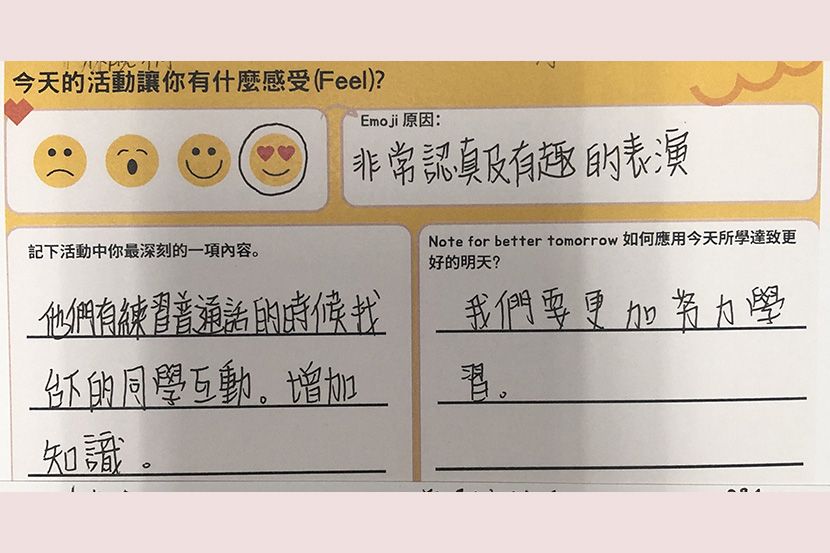 今天的活動讓你有什麼感受(Feel)?
Emoji 原因:
非常認真及有趣的表演
記下活動中你最深刻的一項內容。
他們有練習普通話的時候找
台下的同學互動。增加
知識。
Note for better tomorrow 如何應用今天所學達致更
好的明天?
我們要更加努力學
習。